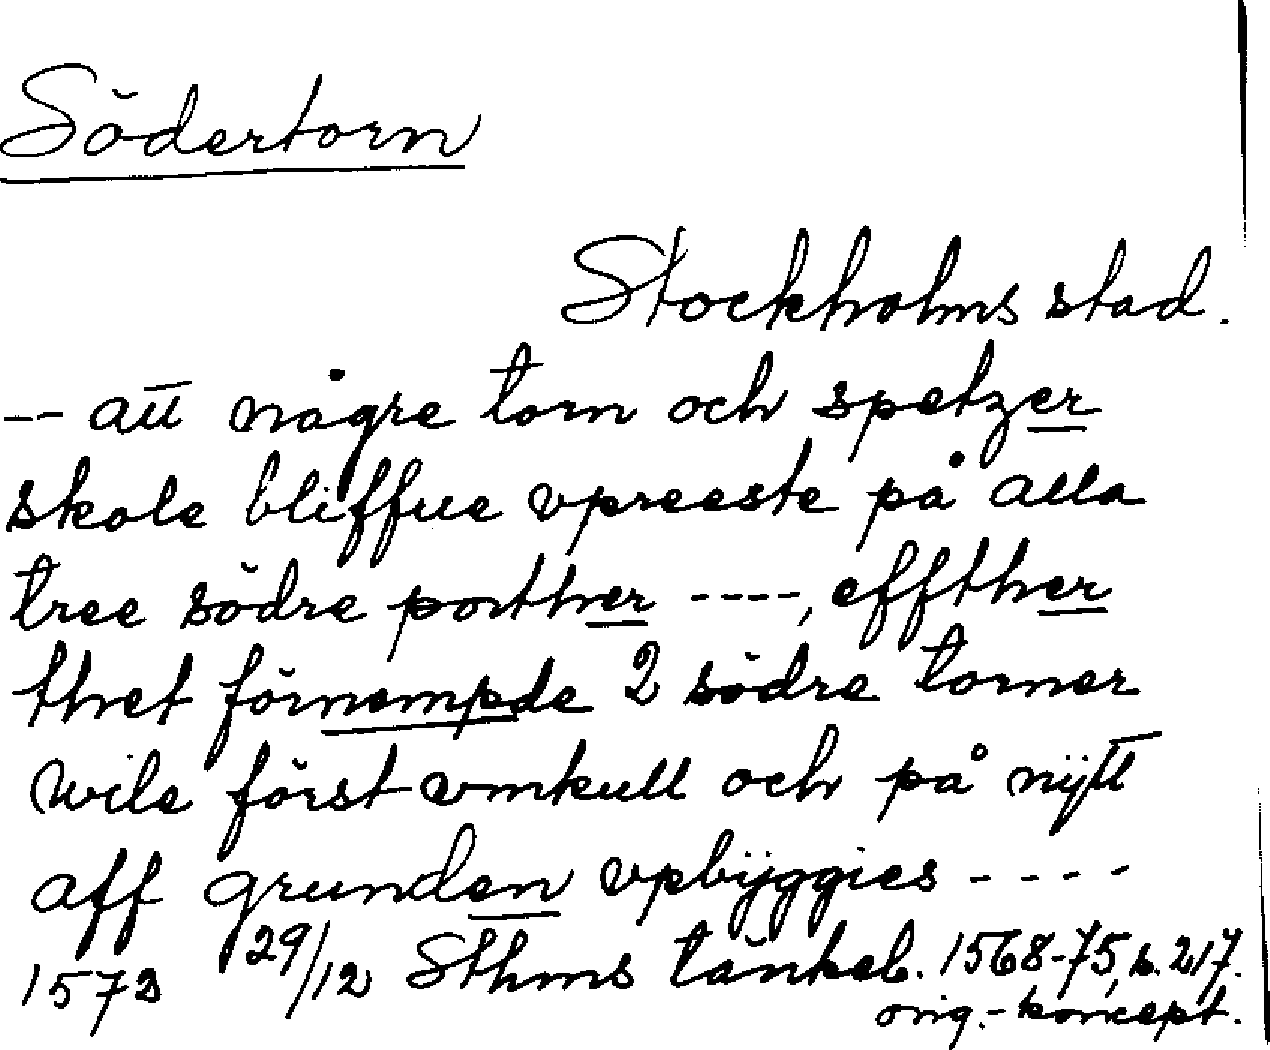 Södertorn
Stockholms stad.
-- att någre torn och spetzer
skole bliffue vpreeste på alla
tree södre porther ----, effther
thet förnempde 2 södre torner
wile först vmkull och på nÿtt
aff grunden vpbÿggies ----
1573 29/12 Sthms tänkeb. 1568-75, s. 217.
orig.-koncept.